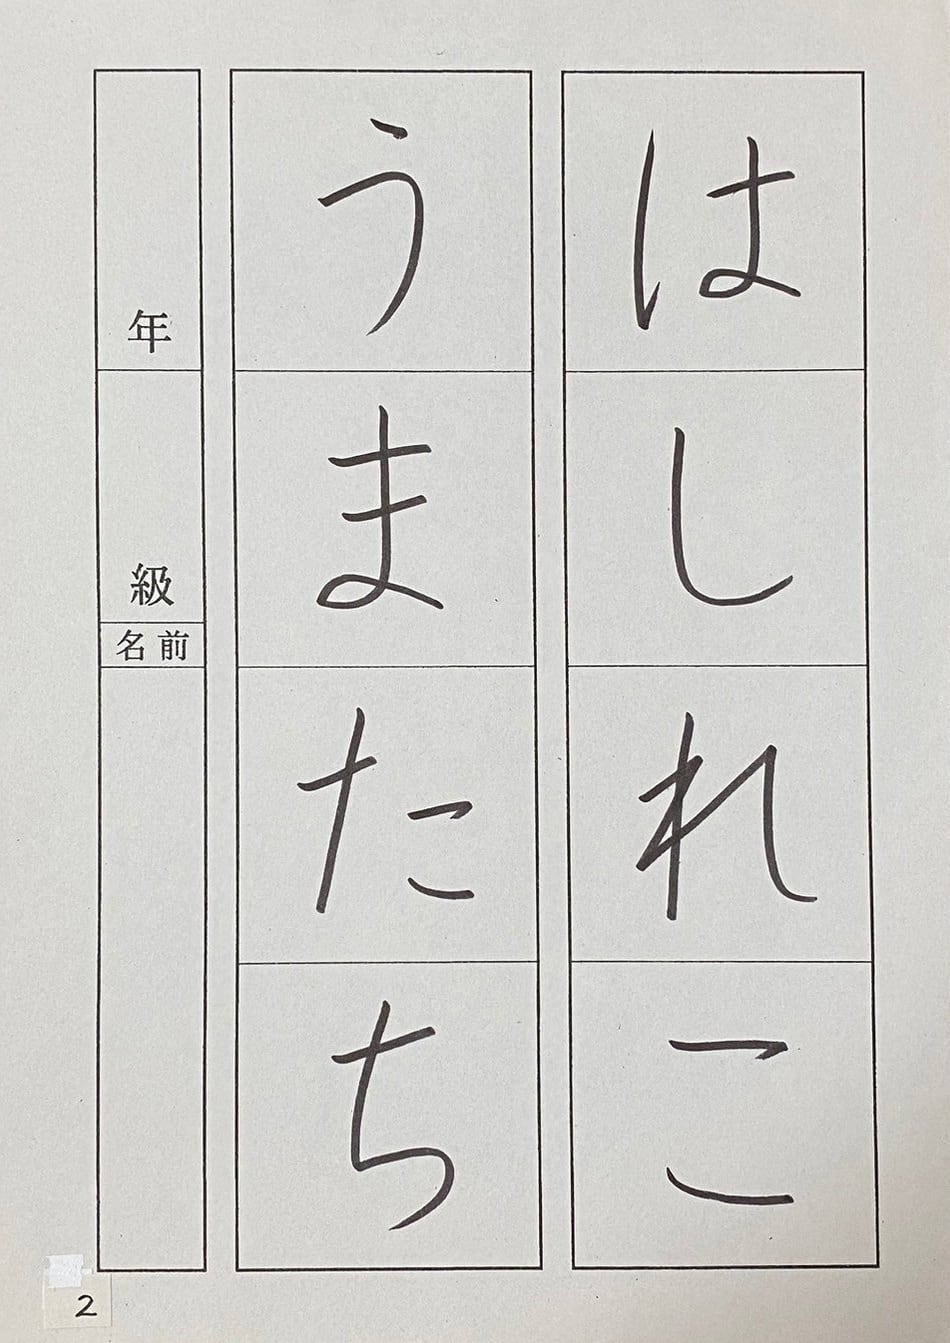 はしれこ
うまたち
年
級
名前
2